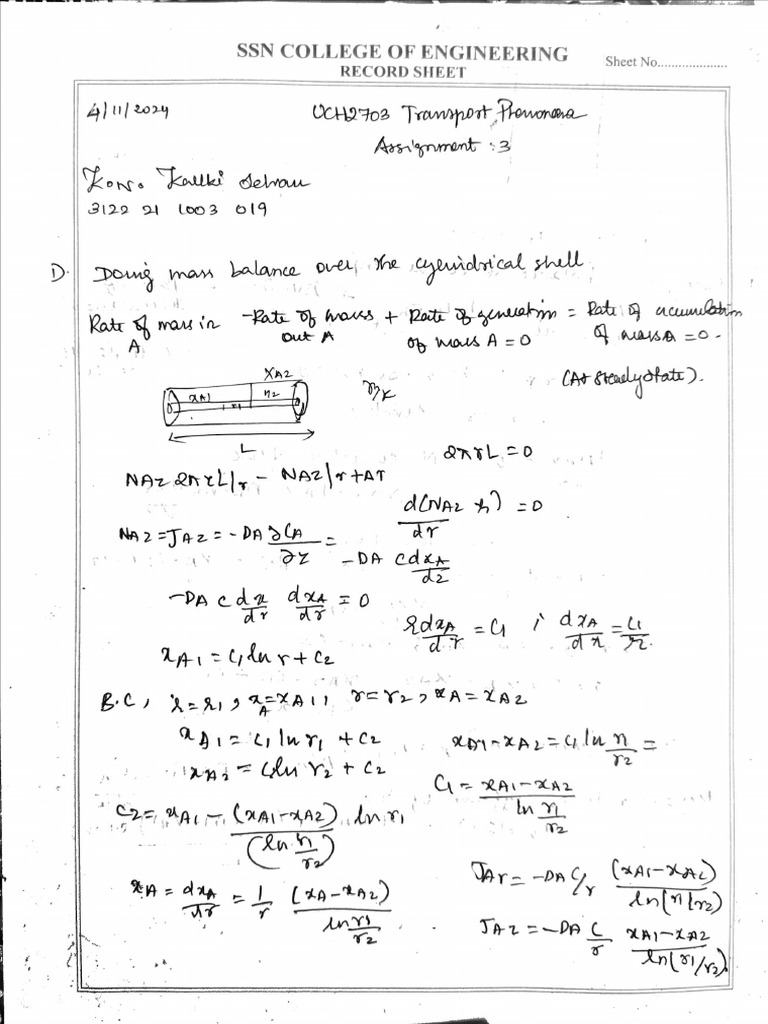 SSN COLLEGE OF ENGINEERING
RECORD SHEET
Sheet No.....................
4/11/2024
UCH2703 Transport Phenomena
Assignment : 3
Kow. Kalki Selvan
3122 21 1003 019
1). Doing mass balance over the cylindrical shell
Rate of mass in A - Rate of mass out A + Rate of generation of mass A = 0 = Rate of accumulation of mass A = 0.
(At steady state).
XA2
xA1 r1 r2
L
2πrL = 0
NAz 2πrL|r - NAz|r+Δr
d(NAz r)/dr = 0
NAz = JAz = -DA ∂CA/∂z = -DA C dxA/dz
-DA C dx/dr dxA/dr = 0
r dxA/dr = C1 ; dxA/dx = C1/r.
xA1 = C1 ln r + C2
B.C, r = r1, xA = xA1, r = r2, xA = xA2
xA1 = C1 ln r1 + C2
xA1 - xA2 = C1 ln r1/r2 =
xA2 = C1 ln r2 + C2
C1 = xA1 - xA2 / ln r1/r2
C2 = xA1 - (xA1 - xA2)/(ln r1/r2) ln r1
xA = dxA/dr = 1/r (xA - xA2)/ln r1/r2
JAr = -DA C/r (xA1 - xA2)/ln(r1/r2)
JAz = -DA C/r xA1 - xA2/ln(r1/r2).